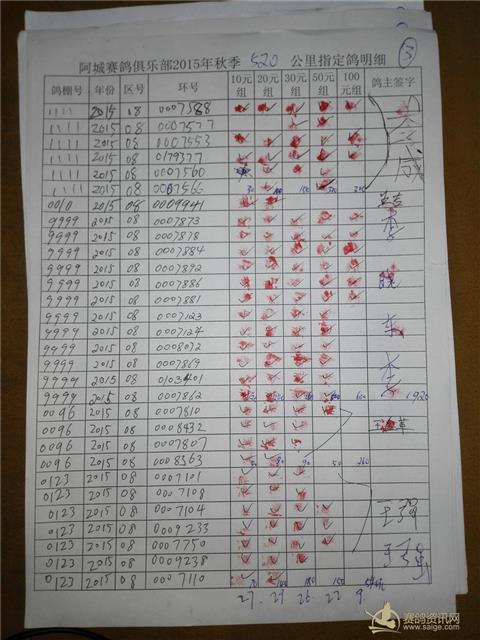 阿城赛鸽俱乐部2015年秋季 520 公里指定鸽明细 ③
鸽棚号 年份 区号 环号 10元组 20元组 30元组 50元组 100元组 鸽主签字
1111 2015 08 0007588
1111 2015 08 0007577
1111 2015 08 0007553
1111 2015 08 0179377
1111 2015 08 0007560
1111 2015 08 0007566
0010 2015 08 0009941
9999 2015 08 0007873
9999 2015 08 0007878
9999 2015 08 0007884
9999 2015 08 0007892
9999 2015 08 0007886
9999 2015 08 0007881
9999 2015 08 0007123
9999 2015 08 0007124
9999 2015 08 0008072
9999 2015 08 0007869
9999 2015 08 0103401
9999 2015 08 0007862 1920
0096 2015 08 0007810
0096 2015 08 0008432
0096 2015 08 0007807
0096 2015 08 0008363
0123 2015 08 0007101
0123 2015 08 0007108
0123 2015 08 0007104 王强
0123 2015 08 0009233
0123 2015 08 0007750
0123 2015 08 0009238
0123 2015 08 0007110
27 29 26 22 9
赛鸽资讯网
www.saige.com